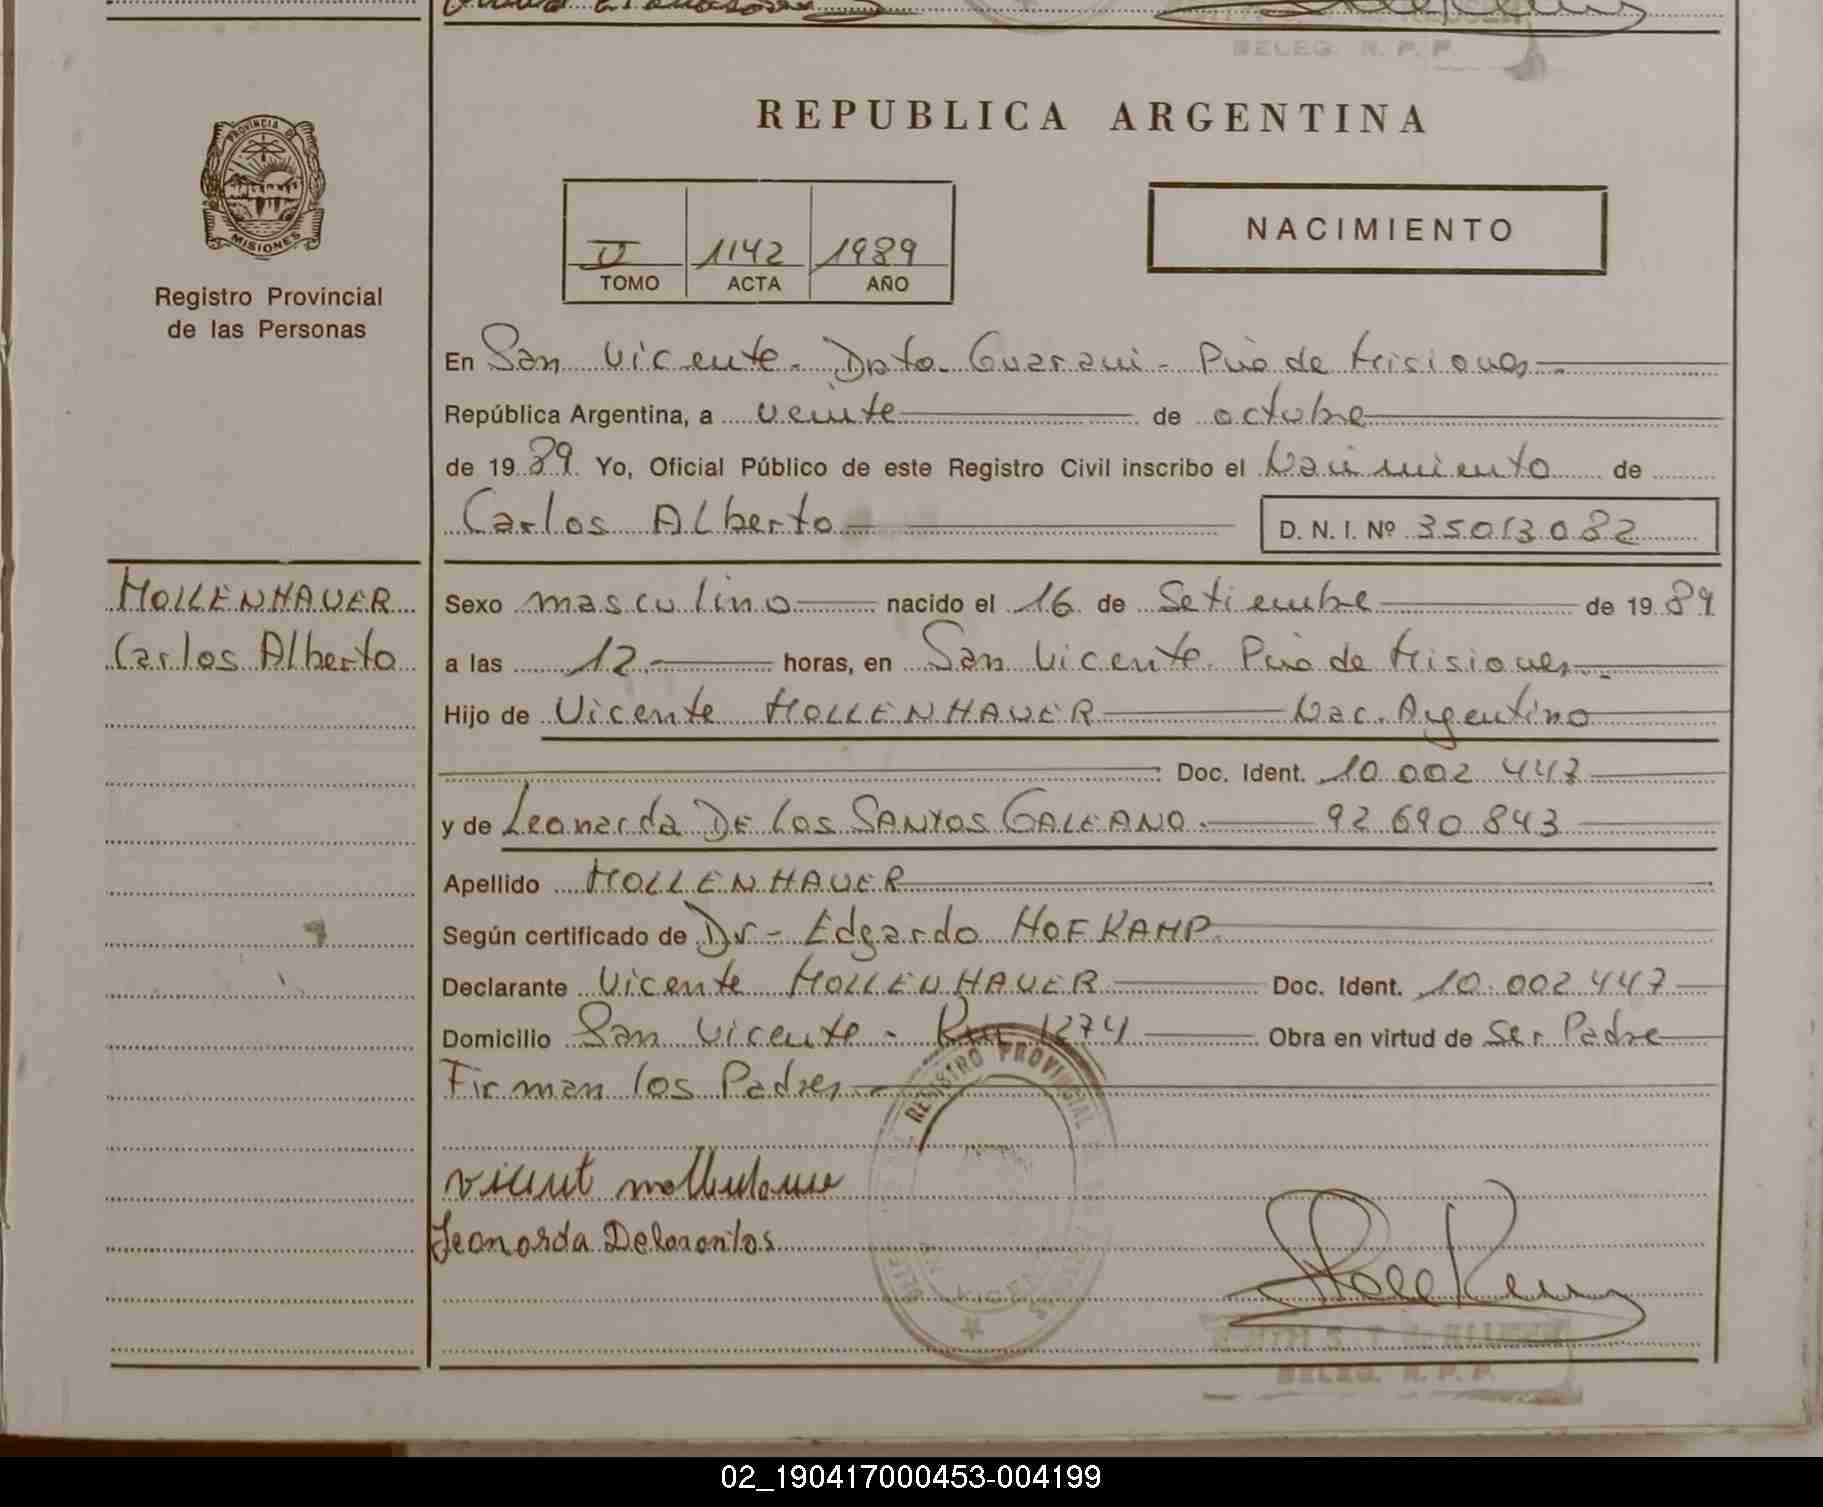 DELEG. R. P. P.
REPUBLICA ARGENTINA
PROVINCIA DE
MISIONES
Registro Provincial
de las Personas
II 1142 1989
TOMO ACTA AÑO
NACIMIENTO
En San Vicente - Dpto. Guarani - Pcia de Misiones
República Argentina, a veinte de octubre
de 1989 Yo, Oficial Público de este Registro Civil inscribo el Nacimiento de
Carlos Alberto D. N. I. Nº 35013082
MOLLENHAUER
Carlos Alberto
Sexo masculino nacido el 16 de Setiembre de 1989
a las 12 horas, en San Vicente Pcia de Misiones
Hijo de Vicente MOLLENHAUER Nac. Argentino
Doc. Ident. 10 002 447
y de Leonarda DE los SANTOS GALEANO 92 690 843
Apellido MOLLENHAUER
Según certificado de Dr - Edgardo HOFKAMP
Declarante Vicente MOLLENHAUER Doc. Ident. 10.002 447
Domicilio San Vicente - 1274 Obra en virtud de Ser Padre
Firman los Padres
REGISTRO PROVINCIAL
Leonorda Delosantos
DELEG. R. P. P.
02_190417000453-004199